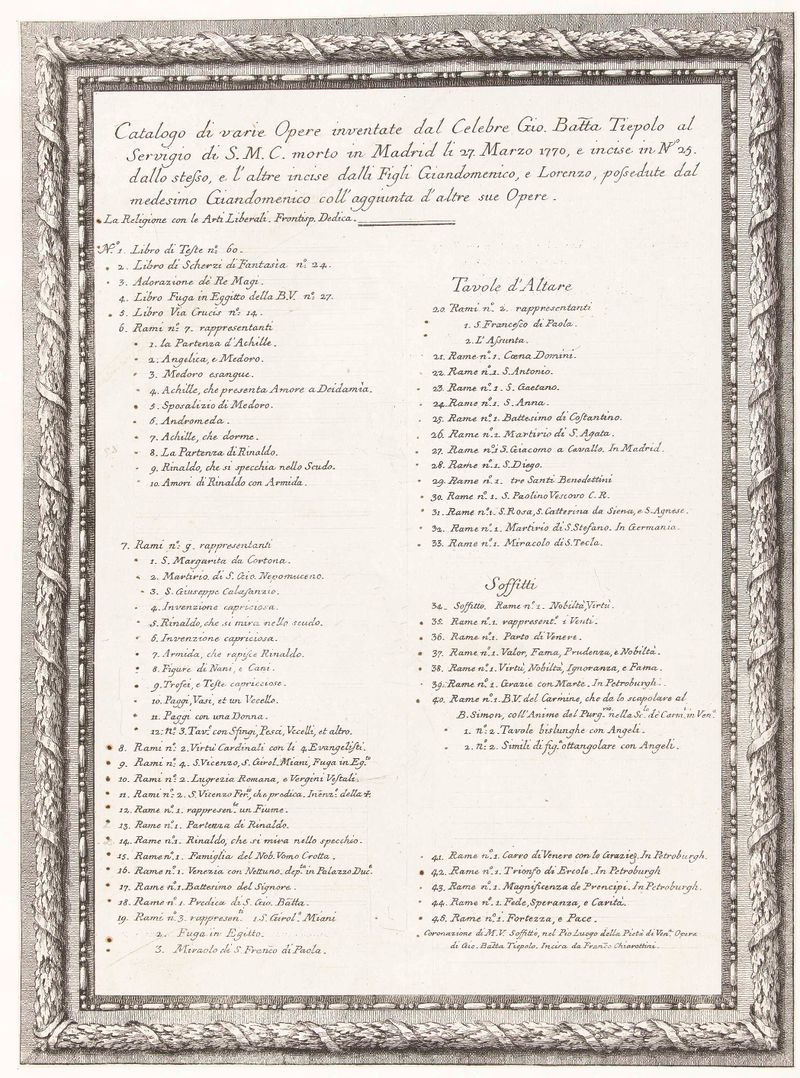 Catalogo di varie Opere inventate dal Celebre Gio. Batta Tiepolo al
Servigio di S. M. C. morto in Madrid li 27. Marzo 1770, e incise in No. 25.
dallo stesso, e l'altre incise dalli Figli Giandomenico, e Lorenzo, possedute dal
medesimo Giandomenico coll'aggiunta d'altre sue Opere.
La Religione con le Arti Liberali. Frontisp. Dedica.
No. 1. Libro di Teste no. 60.
2. Libro di Scherzi di Fantasia no. 24.
3. Adorazione de Re Magi.
4. Libro Fuga in Eggitto della B.V. no. 27.
5. Libro Via Crucis no. 14.
6. Rami no. 7. rappresentanti
1. la Partenza d'Achille.
2. Angelica, e Medoro.
3. Medoro esangue.
4. Achille, che presenta Amore a Deidamia.
5. Sposalizio di Medoro.
6. Andromeda.
7. Achille, che dorme.
8. La Partenza di Rinaldo.
9. Rinaldo, che si specchia nello Scudo.
10. Amori di Rinaldo con Armida.
7. Rami no. 9. rappresentanti
1. S. Margarita da Cortona.
2. Martirio di S. Gio. Nepomuceno.
3. S. Giuseppe Calasanzio.
4. Invenzione capricciosa.
5. Rinaldo, che si mira nello scudo.
6. Invenzione capriciosa.
7. Armida, che rapisce Rinaldo.
8. Figure di Nani, e Cani.
9. Trofei, e Teste capricciose.
10. Paggi, Vasi, et un Vecello.
11. Paggi con una Donna.
12. No. 3. Tav. con Sfingi, Pesci, Vccelli, et altro.
8. Rami no. 2. Virtù Cardinali con li 4. Evangelisti.
9. Rami no. 4. S. Vicenzo, S. Girol. Miani, Fuga in Egto
10. Rami no. 2. Lugrezia Romana, e Vergini Vestali.
11. Rami no. 2. S. Vicenzo Ferro, che predica. Inenzo. della
12. Rame no. 1. rappresente un Fiume.
13. Rame no. 1. Partenza di Rinaldo.
14. Rame no. 1. Rinaldo, che si mira nello specchio.
15. Rame no. 1. Famiglia del Nob. Vomo Crotta.
16. Rame no. 1. Venezia con Nettuno. depta in Palazzo Duc.
17. Rame no. 1. Battesimo del Signore.
18. Rame no. 1. Predica di S. Gio. Batta.
19. Rami no. 3. rappresenti 1. S. Girol. Miani
2. Fuga in Egitto.
3. Miraolo di S. Franco di Paola.
Tavole d'Altare
20. Rami no. 2. rappresentanti
1. S. Francesco di Paola.
2. L'Assunta.
21. Rame no. 1. Cœna Domini.
22. Rame no. 1. S. Antonio.
23. Rame no. 1. S. Gaetano.
24. Rame no. 1. S. Anna.
25. Rame no. 1. Battesimo di Costantino.
26. Rame no. 1. Martirio di S. Agata.
27. Rame no. 1 S. Giacomo a Cavallo. In Madrid.
28. Rame no. 1. S. Diego.
29. Rame no. 1. tre Santi Benedettini
30. Rame no. 1. S. Paolino Vescovo C. R.
31. Rame no. 1. S. Rosa, S. Catterina da Siena, e S. Agnese.
32. Rame no. 1. Martirio di S. Stefano. In Germania.
33. Rame no. 1. Miracolo di S. Tecla.
Soffitti
34. Soffitto. Rame no. 1. Nobiltà, Virtù.
35. Rame no. 1. rappresente i Venti.
36. Rame no. 1. Parto di Venere.
37. Rame no. 1. Valor, Fama, Prudenza, e Nobiltà.
38. Rame no. 1. Virtù, Nobiltà, Ignoranza, e Fama.
39. Rame no. 1. Grazie con Marte. In Petroburgh.
40. Rame no. 1. B. V. del Carmine, che da lo scapolare al
B. Simon, coll'Anime del Purg. nella Scla de Carni in Ven.
1. no. 2. Tavole bislunghe con Angeli.
2. no. 2. Simili di figa ottangolare con Angeli.
41. Rame no. 1. Carro di Venere con le Grazie. In Petroburgh.
42. Rame no. 1. Trionfo di Ercole. In Petroburgh
43. Rame no. 1. Magnificenza de Prencipi. In Petroburgh.
44. Rame no. 1. Fede, Speranza, e Carità.
45. Rame no. 1. Fortezza, e Pace.
Coronazione di M. V. Soffitto, nel Pio Luogo della Pietà di Vena. Opera
di Gio. Batta Tiepolo. Incisa da Franco Chiarottini.